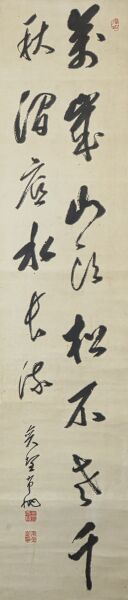 萬歳山頭松不老千
秋澗底水長流